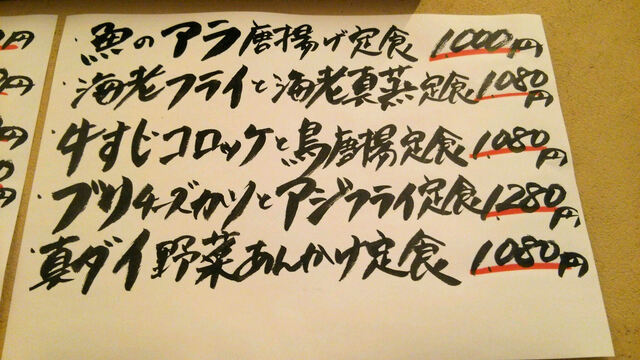 ・魚のアラ唐揚げ定食 1000円
・海老フライと海老真蒸定食 1080円
・牛すじコロッケと鳥唐揚定食 1080円
・ブリチーズカツとアジフライ定食 1280円
・真ダイ野菜あんかけ定食 1,080円